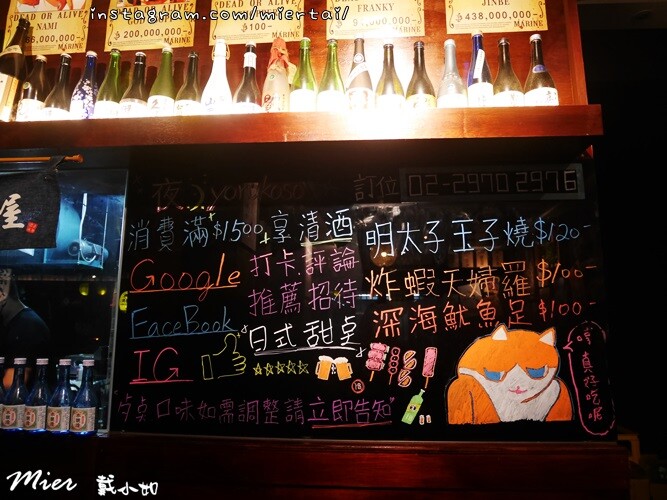 instagram.com/miertai/
DEAD OR ALIVE
NAMI
MARINE
200,000,000-
MARINE
DEAD OR ALIVE
$100-
MARINE
FRANKY
MARINE
JINBE
$438,000,000-
MARINE
屋
夜 yorukoso
訂位 02-2970 2976
消費滿$1500 享清酒
Google
FaceBook
IG
打卡, 評論
推薦 招待
日式 甜桌
明太子玉子燒$120-
炸蝦天婦羅$100-
深海魷魚足$100-
口味如需調整請立即告知
真好吃喔
Mier 戴小如